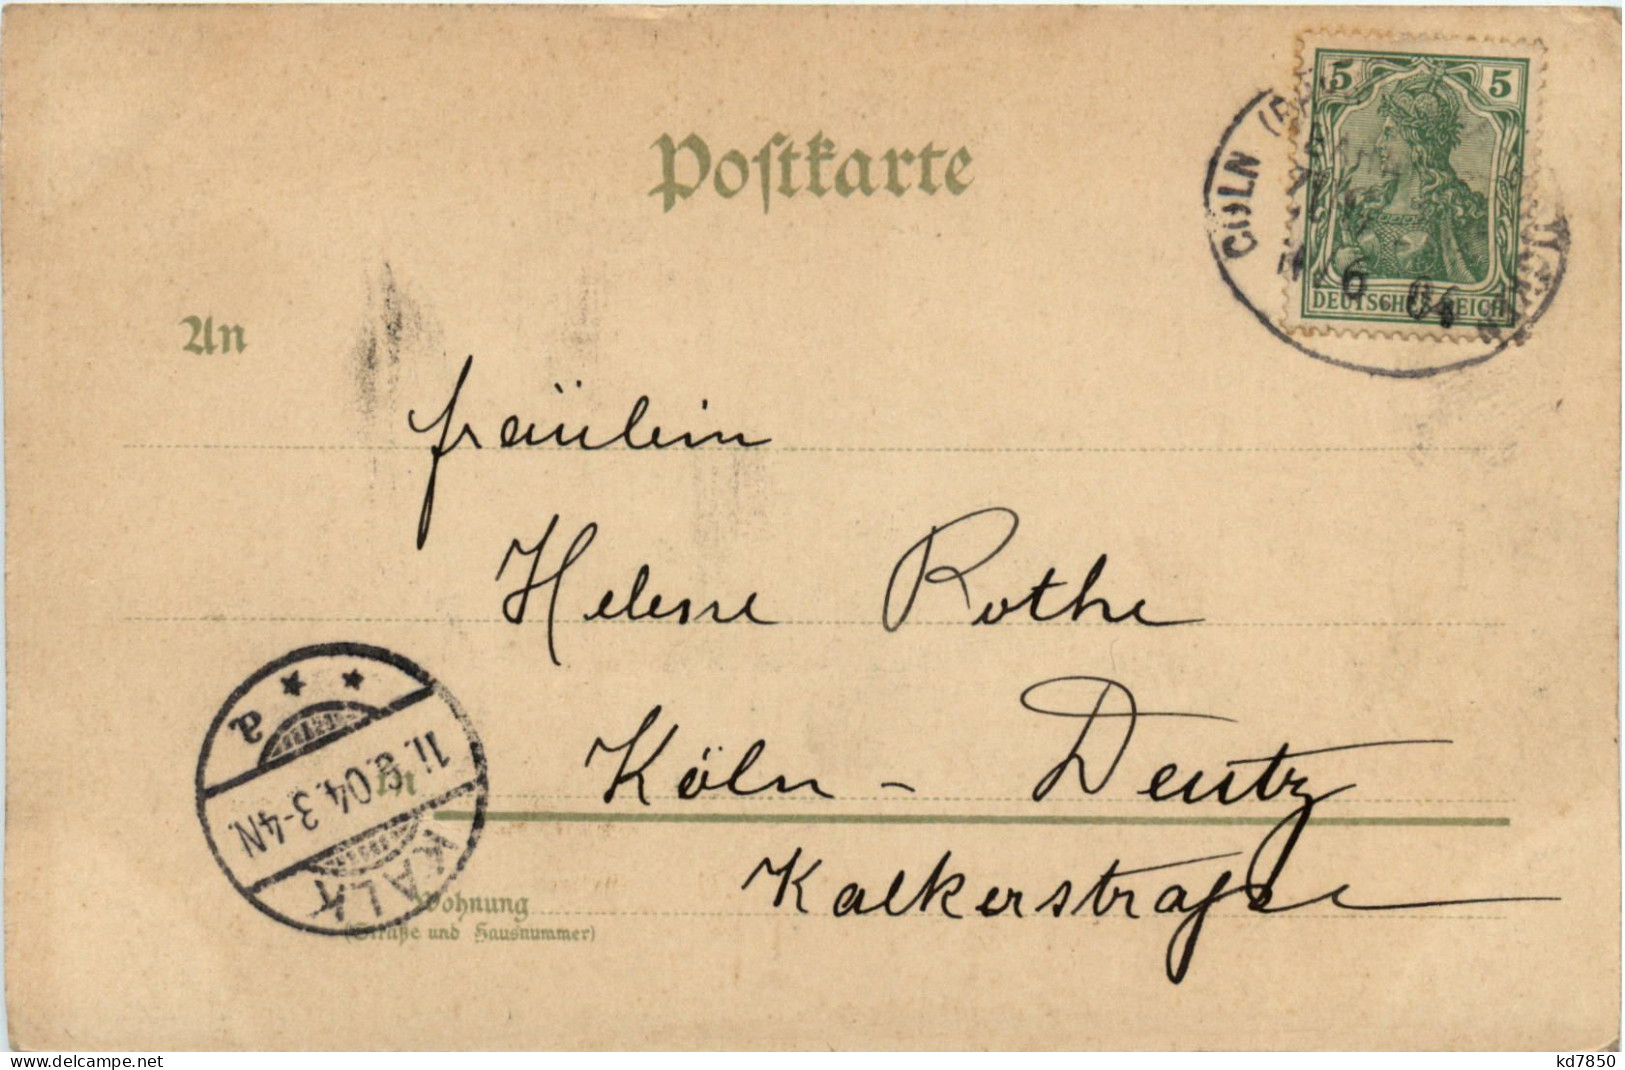 Postkarte
5 5
DEUTSCHES REICH
CÖLN
6 04
An
Fräulein
Helene Rothe
in
Köln - Deutz
Kalkerstraße
Wohnung
(Straße und Hausnummer)
KALK
11.6.04.3-4N.
a
www.delcampe.net
kd7850